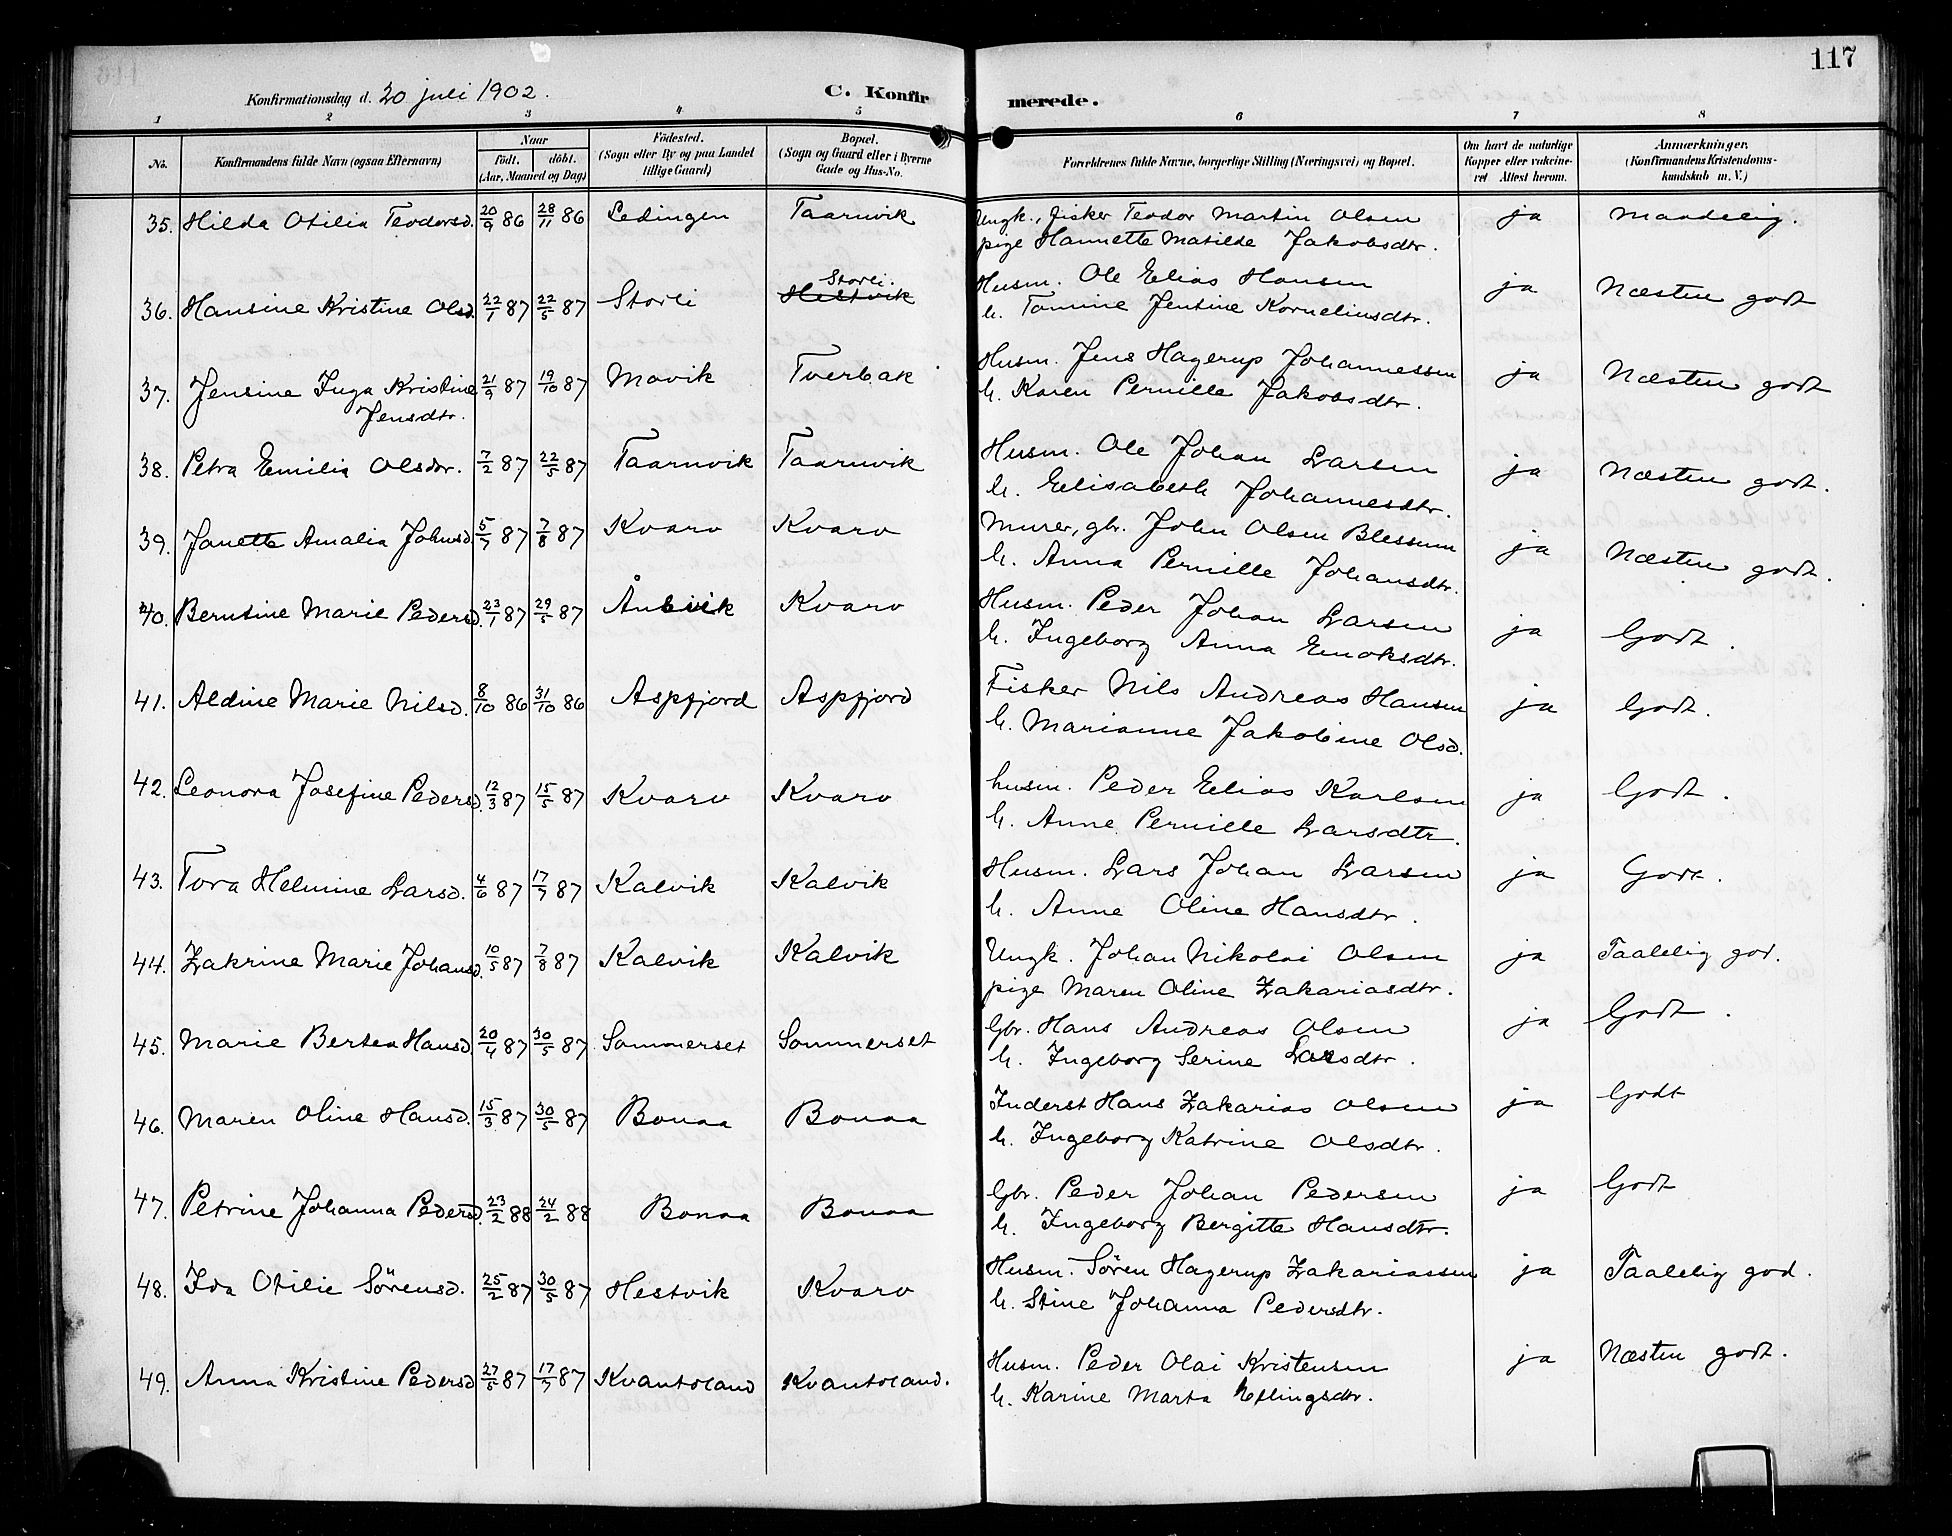 117
Konfirmationsdag d. 20 juli 1902.
C. Konfirmerede.
1 2 3 4 5 6 7 8
No. Konfirmandens fulde Navn (ogsaa Efternavn) Naar födt. döbt. (Aar, Maaned og Dag) Födested. (Sogn eller By og paa Landet tillige Gaard) Bopæl. (Sogn og Gaard eller i Byerne Gade og Hus-No. Forældrenes fulde Navne, borgerlige Stilling (Næringsvei) og Bopæl. Om havt de naturlige Kopper eller vakcineret Attest herom. Anmærkninger. (Konfirmandens Kristendomskundskab m. V.)
35. Hilda Otilia Teodorsd. 20/9 86 28/11 86 Lødingen Taarnvik Ungk., fisker Teodor Martin Olsen ja Maadelig.
pige Hannette Matilde Jakobsdtr.
36. Hansine Kristine Olsd. 22/1 87 22/5 87 Storli Storli. Hestvik Husm. Ole Elias Hansen ja Næsten godt
h. Tomine Jentine Korneliusdtr.
37. Jensine Inga Kristine 21/9 87 19/10 87 Movik Tverbak Husm. Jens Hagerup Johannessen ja Næsten godt
Jensdtr. h. Karen Pernille Jakobsdtr.
38. Petra Emilia Olsdtr. 7/2 87 22/5 87 Taarnvik Taarnvik Husm. Ole Johan Larsen ja Næsten godt.
h. Elisabeth Johannesdtr.
39. Janette Amalia Johnsd. 5/7 87 7/8 87 Kvarv Kvarv Murer, gbr. John Olsen Blessum ja Næsten godt.
h. Anna Pernille Johansdtr.
40. Berntine Marie Pedersd. 23/1 87 29/5 87 Kvarv Husm. Peder Johan Larsen ja Godt.
h. Ingeborg Anna Enoksdtr.
41. Aldine Marie Nilsd. 8/10 86 31/10 86 Aspfjord Aspfjord Fisker Nils Andreas Hansen ja Godt.
h. Marianne Jakobine Olsd.
42. Leonora Josefine Pedersd. 12/3 87 15/5 87 Kvarv Kvarv husm. Peder Elias Karlsen ja Godt.
h. Anne Pernille Larsdtr.
43. Tora Helmine Larsd. 4/6 87 17/7 87 Kalvik Kalvik Husm. Lars Johan Larsen ja Godt.
h. Anne Oline Hansdtr.
44. Zakrine Marie Johansd. 10/5 87 7/8 87 Kalvik Kalvik Ungk. Johan Nikolai Olsen ja Taalelig god.
pige Maren Oline Zakariasdtr.
45. Marie Bertea Hansd. 20/4 87 30/5 87 Sommerset Sommerset Gbr. Hans Andreas Olsen ja Godt.
h. Ingeborg Serine Larsdtr.
46. Maren Oline Hansd. 15/3 87 30/5 87 Bonaa Bonaa Inderst Hans Zakarias Olsen ja Godt
h. Ingeborg Katrine Olsdtr.
47. Petrine Johanna Pedersd. 23/2 88 24/2 88 Bonaa Bonaa Gbr. Peder Johan Pedersen ja Godt
h. Ingeborg Bergitte Hansdtr.
48. Ida Otilie Sörensd. 25/2 87 30/5 87 Hestvik Kvarv Husm. Sören Hagerup Zakariassen ja Taalelig god.
h. Stine Johanna Pedersdtr.
49. Anna Kristine Pedersd 27/5 87 17/7 87 Kvantoland Kvantoland. Husm. Peder Olai Kristensen ja Næsten godt.
h. Karine Marta Ellingsdtr.